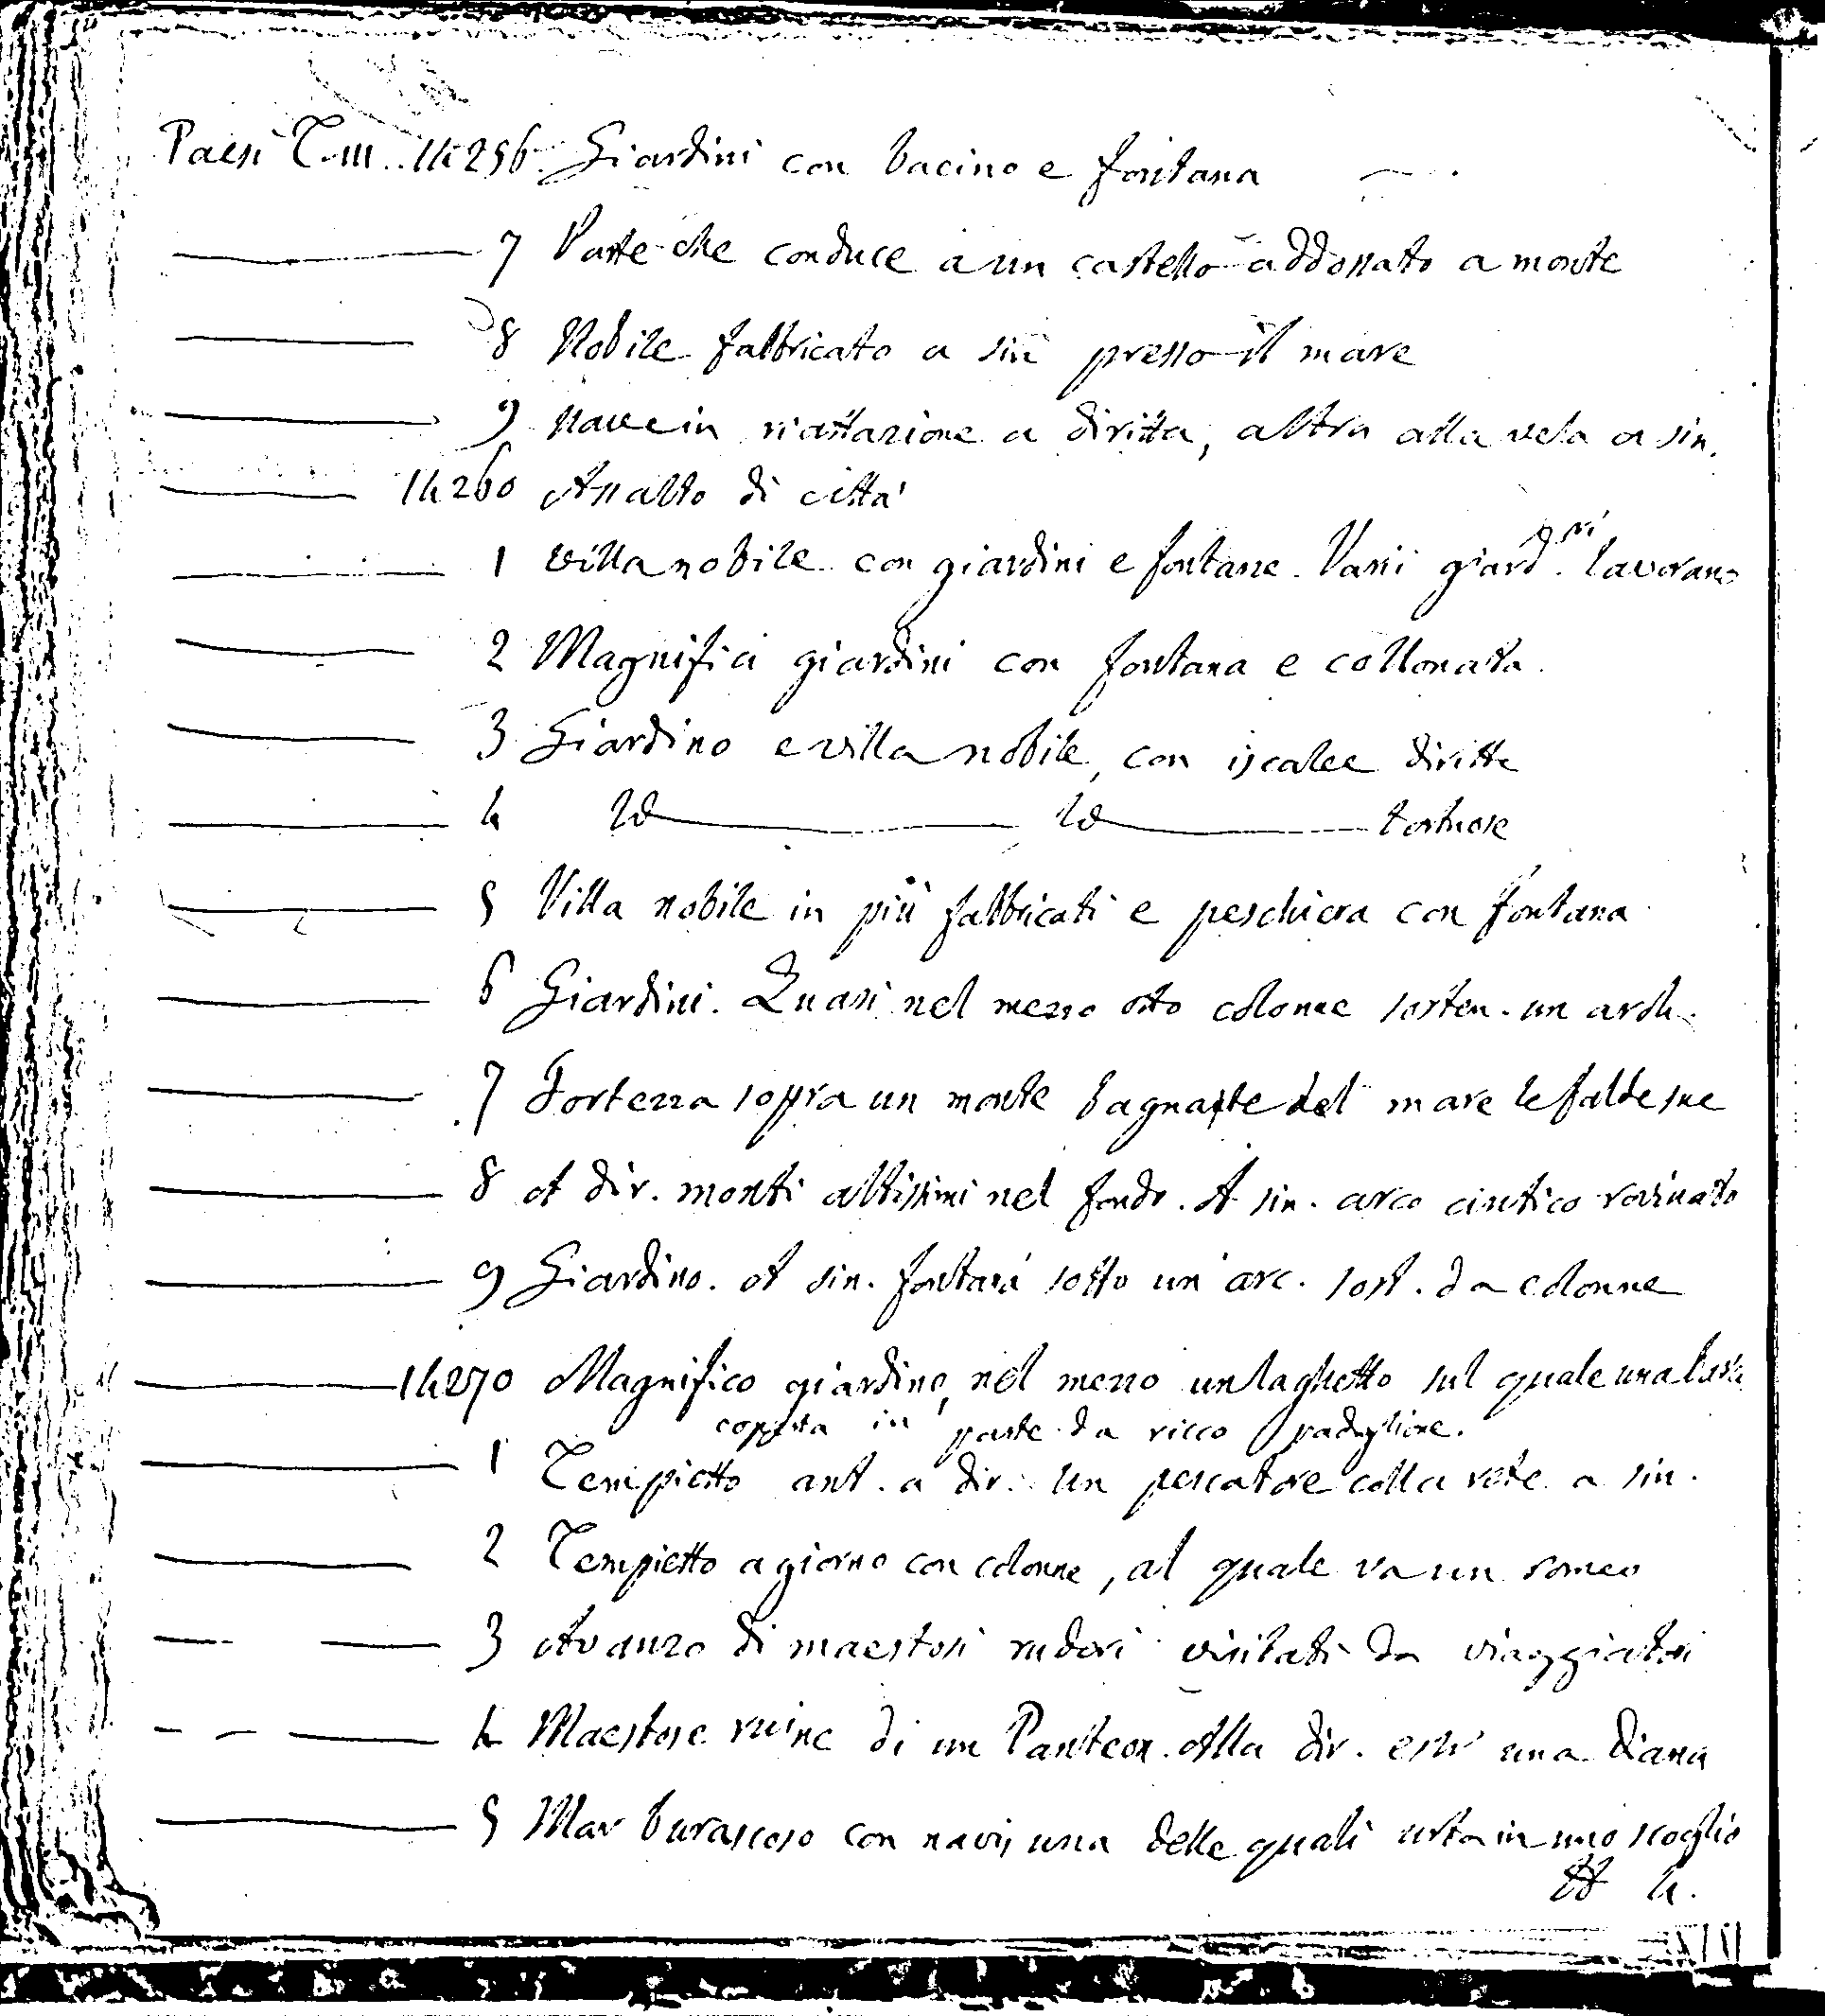 Paesi T. III.. 14256. Giardini con bacino e fontana
7 Parte che conduce a un castello addossato a monte
8 Nobile fabbricato a sin presso il mare
9 Nave in riattazione a diritta, altra alla vela a sin.
14260 Assalto di città
1 Villa nobile con giardini e fontane. Varii giard.ni lavorano
2 Magnifici giardini con fontana e collonata.
3 Giardino e villa nobile, con iscalee diritte
4 Id Id tortuose
5 Villa nobile in più fabbricati e peschiera con fontana
6 Giardini. Quasi nel mezzo otto colonne sosten. un arch.
7 Fortezza sopra un monte bagnante del mare le falde sue
8 A dir. monti altissimi nel fondo. A sin. arco antico rovinato
9 Giardino. A sin. fontana sotto un arc. sost. da colonne
14270 Magnifico giardino, nel mezzo un laghetto sul quale una barca
coperta in parte da ricco padiglione.
1 Tempietto ant. a dir. Un pescatore colla rete a sin.
2 Tempietto a giorno con colonne, al quale va un romeo
3 Avanzo di maestosi ruderi visitati da viaggiatori
4 Maestose ruine di un Panteon. Alla dir. evvi una Diana
5 Mar burascoso con navi, una delle quali urta in uno scoglio